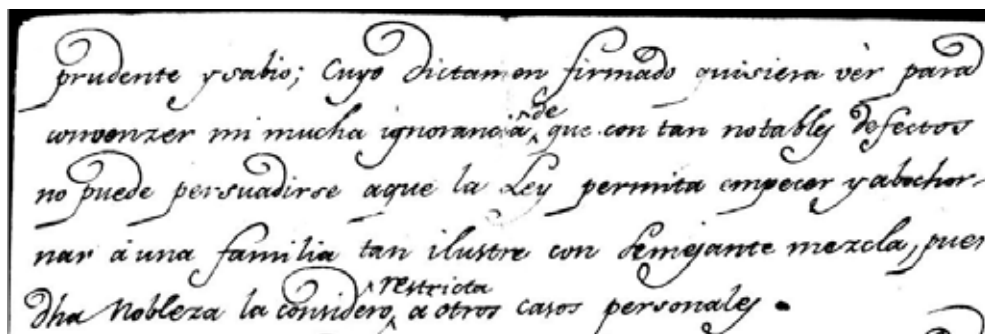 prudente y sabio; Cuyo dictamen firmado quisiera vèr para
convenzer mi mucha ignorancia ^de que con tan notables defectos
no puede persuadirse aque la Ley permita empecer y abochor-
nar à una familia tan ilustre con semejante mezcla, pues
dha Nobleza la considero ^restricta a otros casos personales.